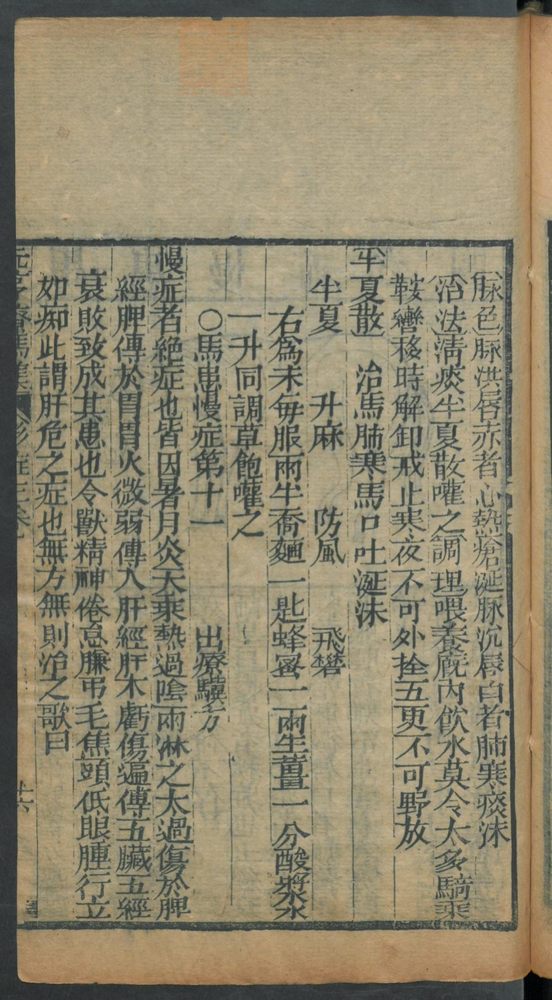 脉色脉洪唇赤者心熱瘡涎脉沉唇白者肺寒痰沫
治法清痰半夏散嚾之調理喂養廐内飲水莫令太多騎乘
鞍轡移時解卸戒止寒夜不可外拴五更不可野放
半夏散 治馬肺寒馬口吐涎沫
半夏 升麻 防風 飛礬
右為末每服兩半喬麵一匙蜂蜜二兩生薑一分酸漿水
一升同調草飽嚾之
○馬患慢症第十一 出療驥方
慢症者絶症也皆因暑月炎天乘熱過陰雨淋之太過傷於脾
經脾傳於胃胃火微弱傳入肝經肝木虧傷遍傳五臟五經
衰敗致成其患也令獸精神倦怠臁吊毛焦頭低眼腫行立
如痴此謂肝危之症也無方無則治之歌曰
元亨療馬集
十六